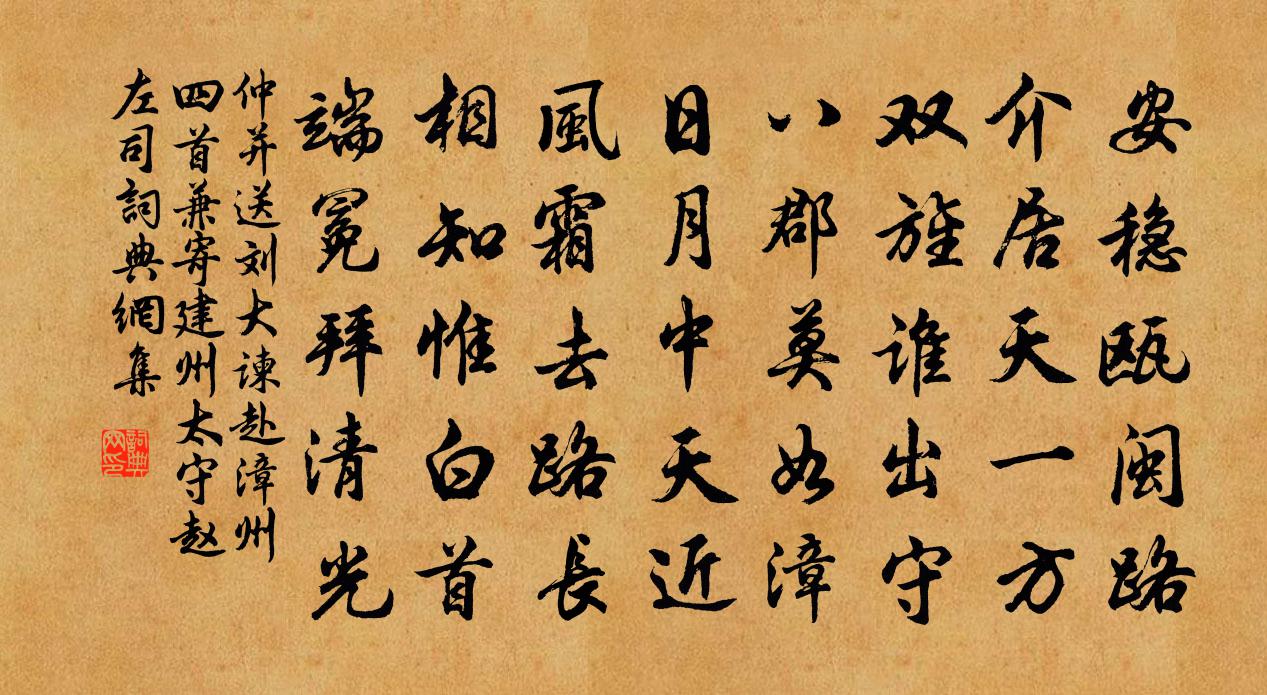 安稳瓯闽路
介居天一方
双旌谁出守
八郡莫如漳
日月中天近
風霜去路長
相知惟白首
端冕拜清光
仲并送刘大谏赴漳州
四首兼寄建州太守赵
左司詞典網集
詞典
网印